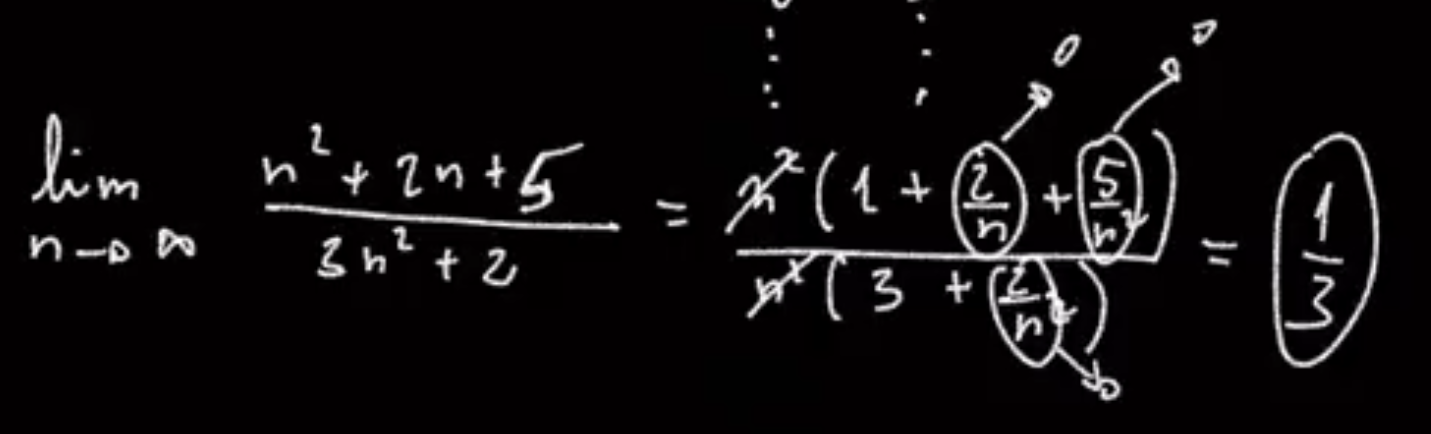 lim n→∞ (n² + 2n + 5)/(3n² + 2) = n²(1 + 2/n + 5/n²)/n²(3 + 2/n²) = 1/3
→ 0
→ 0
→ 0